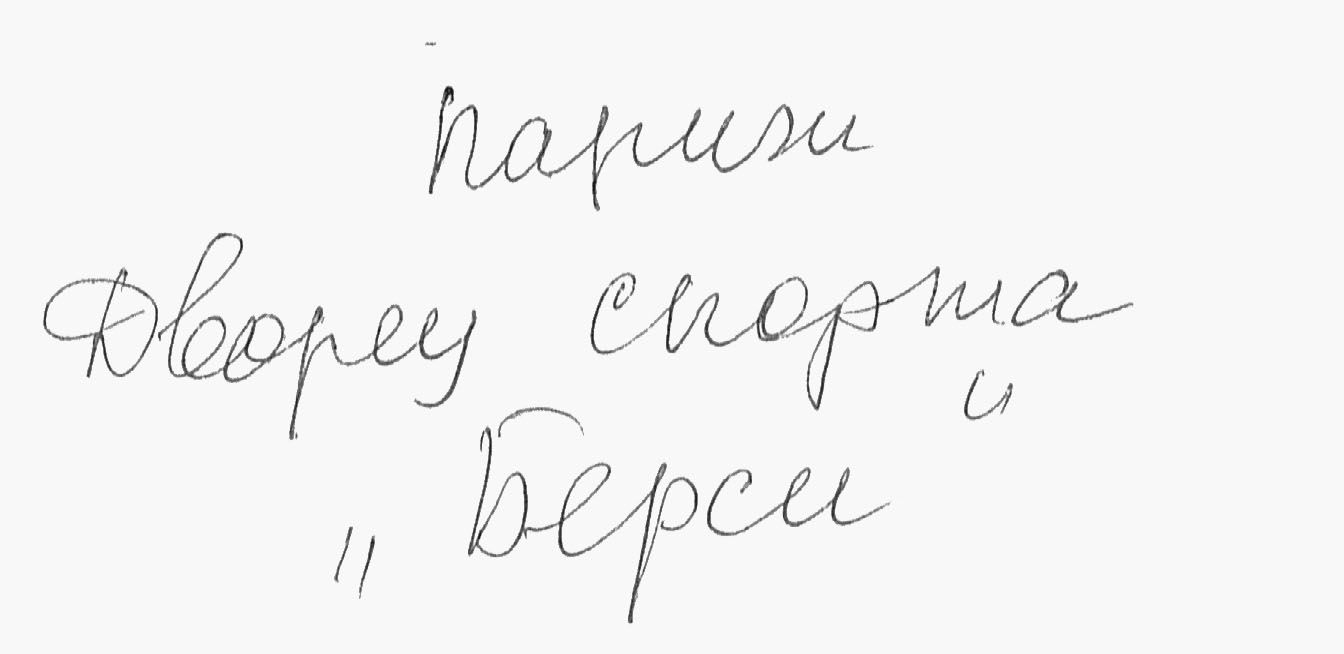 Париж
Дворец спорта
„Берси“